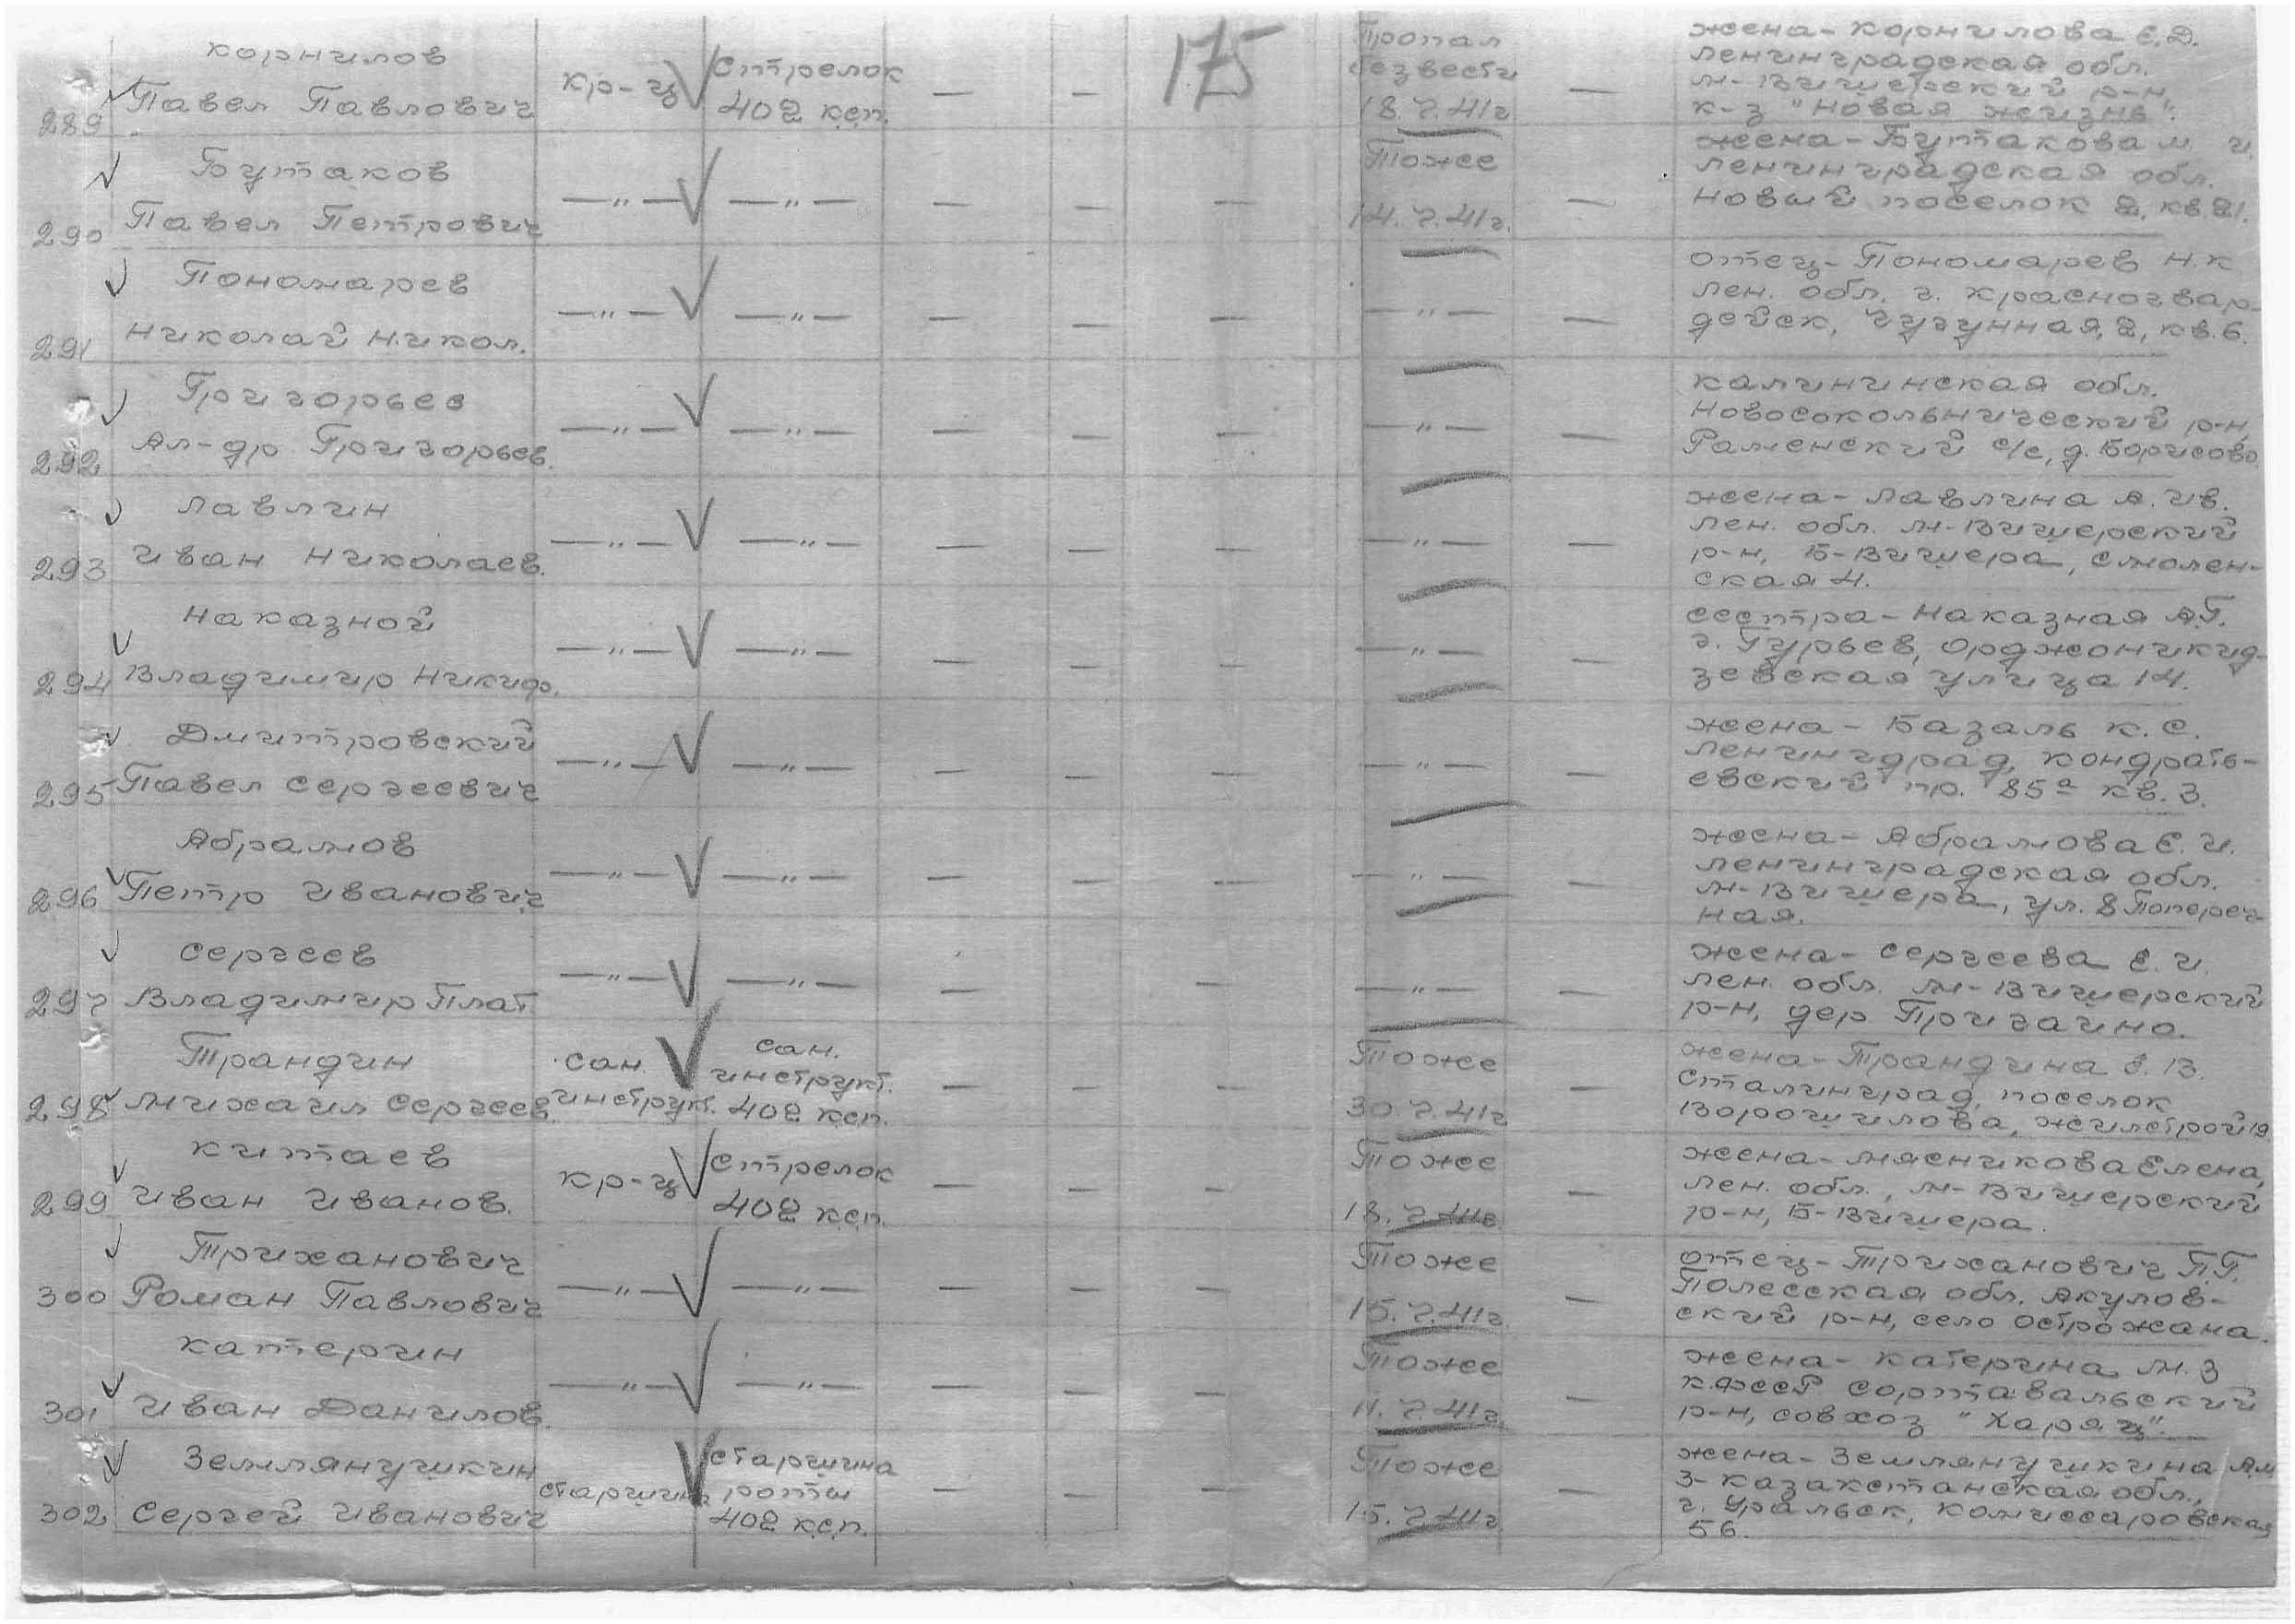 175
Корнилов
289 Павел Павлович кр-ц Стрелок 402 ксп. — — Пропал безвести 18.7.41г — жена-Корнилова Е.Д.
Ленинградская обл.
М-Вишерский р-н,
к-з "Новая жизнь".
Бутаков
290 Павел Петрович —"— —"— — — — Тоже 14.7.41г. — жена-Бутакова М. И.
Ленинградская обл.
Новый поселок 2, кв.21.
Пономарев
291 Николай Никол. —"— —"— — — — —"— — отец-Пономарев Н.К
Лен. обл. г. Красногвар-
дейск, Чугунная, 2, кв.6.
Григорьев
292 Ал-др Григорьев. —"— —"— — — — —"— — Калининская обл.
Новосокольнический р-н,
Раменский с/с, д. Борисово
Лавлин
293 Иван Николаев. —"— —"— — — — —"— — жена-Лавлина А. Ив.
Лен. обл. М-Вишерский
р-н, Б-Вишера, Смолен-
ская 4.
Наказной
294 Владимир Никиф. —"— —"— — — — —"— — сестра-Наказная А.Г.
г. Гурьев, Орджоникид-
зевская улица 14.
Дмитровский
295 Павел Сергеевич —"— —"— — — — —"— — жена-Базаль К. С.
Ленингдрад, Кондрать-
евский пр. 85а кв. 3.
Абрамов
296 Петр Иванович —"— —"— — — — —"— — жена-Абрамова Е. И.
Ленинградская обл.
М-Вишера, ул. 8 Попереч-
ная.
Сергеев
297 Владимир Плат. —"— —"— — — — —"— — жена-Сергеева Е. И.
Лен. обл. М-Вишерский
р-н, дер Пригаино.
Трандин
298 Михаил Сергеев. сан. инструкт. сан. инструкт. 402 ксп. — — — Тоже 30.7.41г — жена-Трандина Е. В.
Сталинград, поселок
Ворошилова, жилстрой 19
Китаев
299 Иван Иванов. кр-ц Стрелок 402 ксп. — — — Тоже 18.7.41г. — жена-Мясникова Елена,
Лен. обл., М-Вишерский
р-н, Б-Вишера.
Триханович
300 Роман Павлович —"— —"— — — — Тоже 15.7.41г. — отец-Триханович П.Г.
Полесская обл. Акулов-
ский р-н, село Острожана.
Катергин
301 Иван Данилов. —"— —"— — — — Тоже 11.7.41г. — жена-Катергина М. З
К.ФССР Сортавальский
р-н, совхоз "Харяц".
Землянушкин
302 Сергей Иванович старшина старшина роты 402 ксп. — — — Тоже 15.7.41г — жена-Землянушкина А.М
З-Казакстанская обл.,
г. Уральск, Комиссаровская
56.